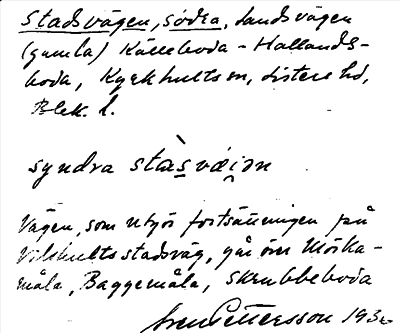 Stadsvägen, södra, Landsvägen
(gamla) Källeboda - Hallands-
boda, Kyrkhults sn, Listers hd,
Blek. l.
syndra stàsvæi̯ən
Vägen, som utgör fortsättningen på
Vilshults stadsväg, går om Mörka-
måla, Baggemåla, Skrubbeboda
Sven Pettersson